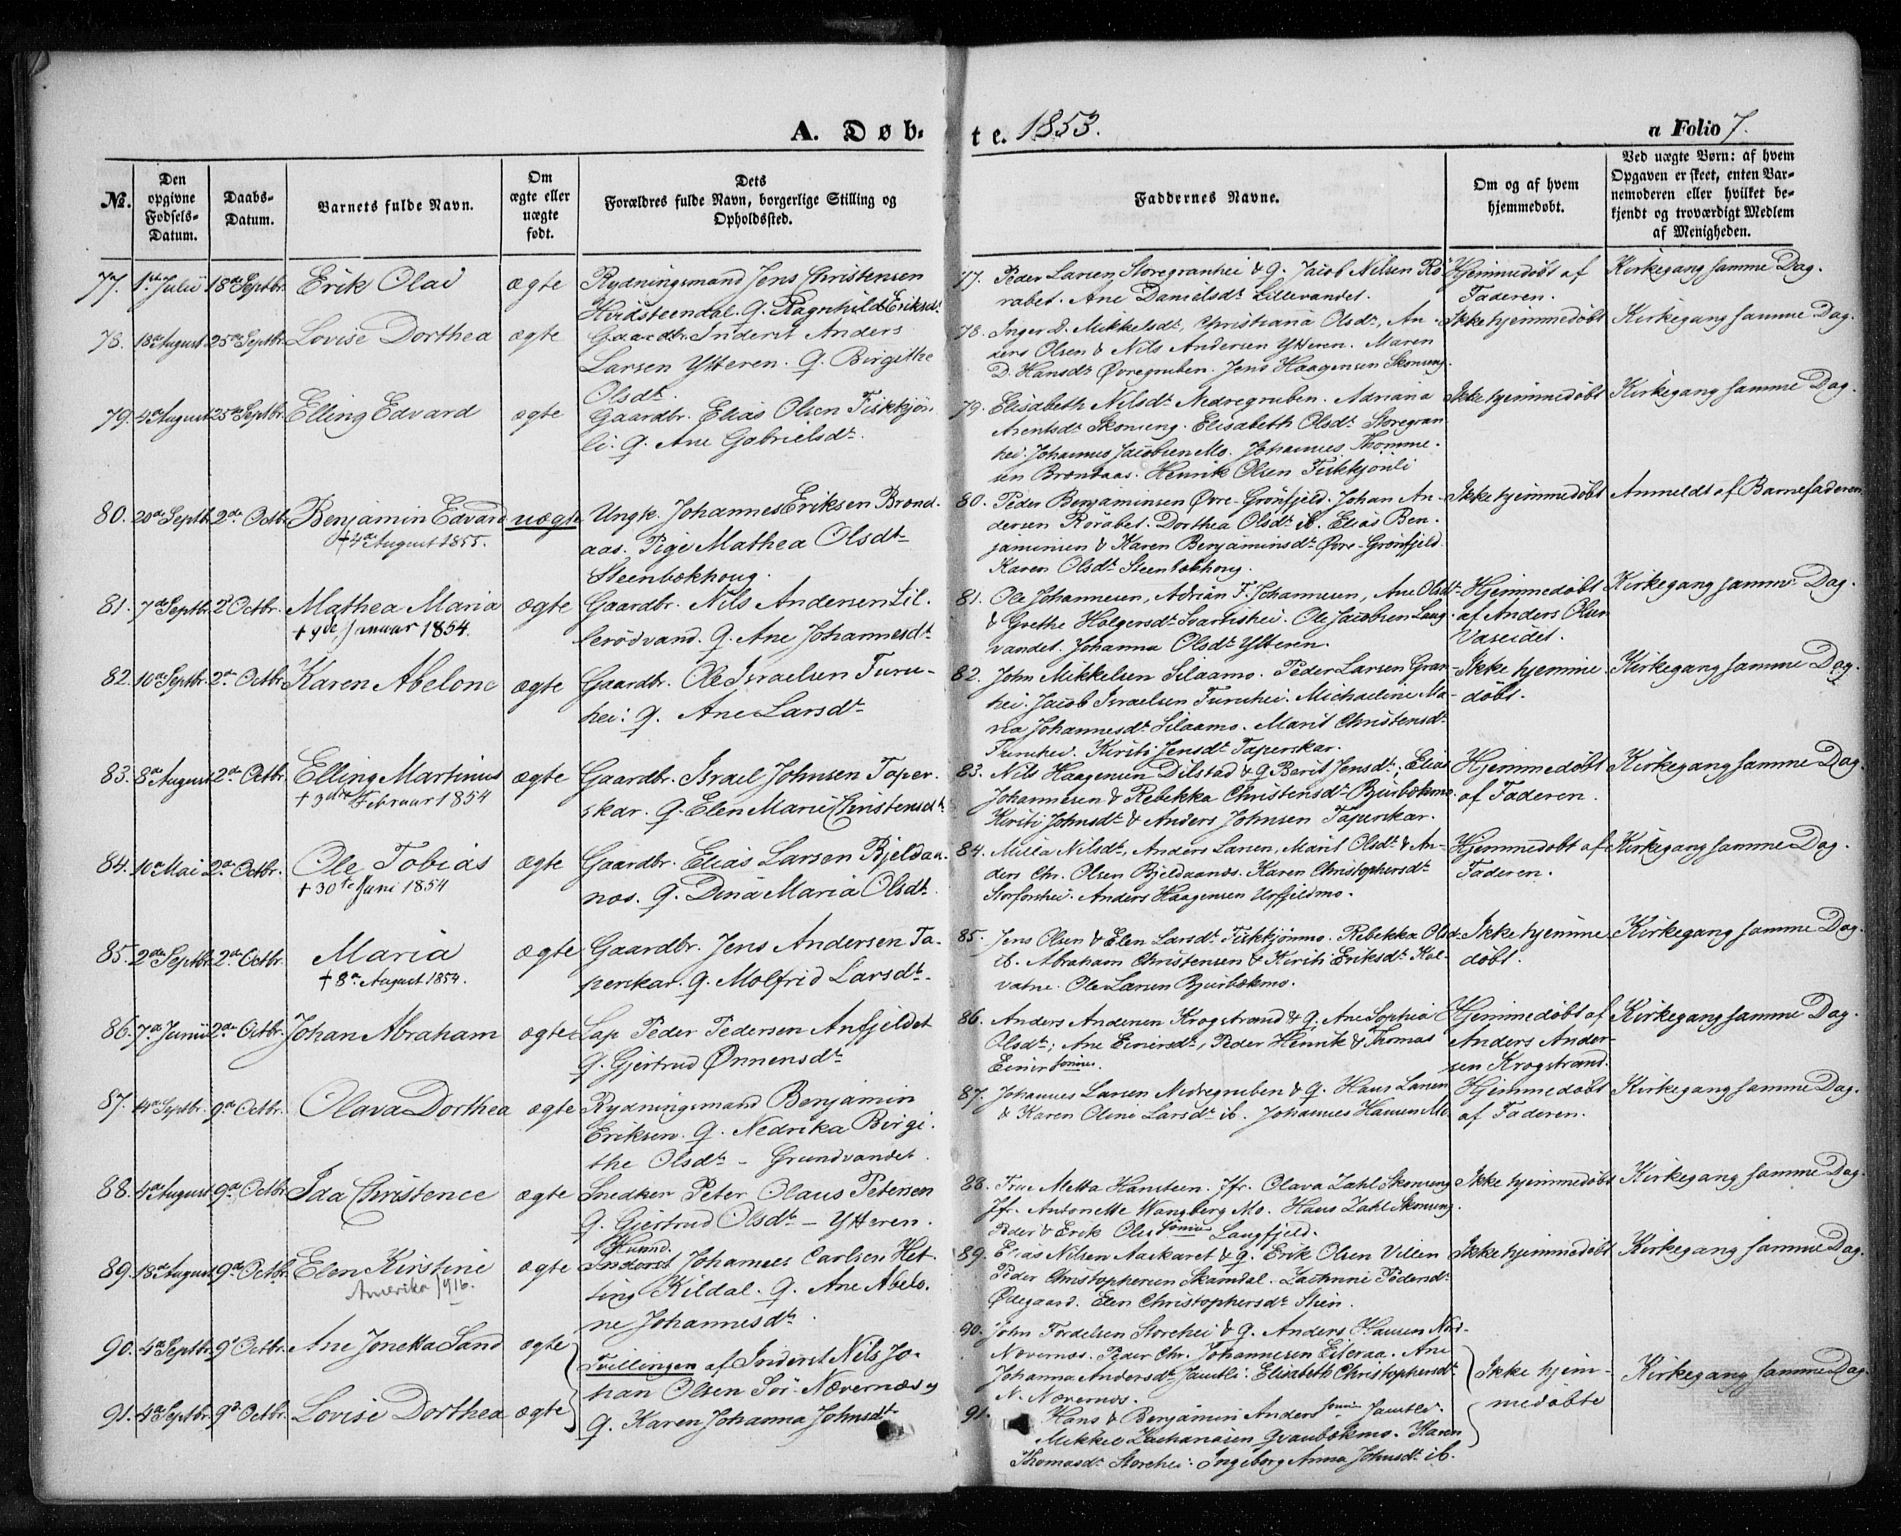 A. Døb-
te. 1853.
a Folio 7.
No.
Den opgivne Fødsels-Datum.
Daabs-Datum.
Barnets fulde Navn.
Om ægte eller uægte født.
Dets Forældres fulde Navn, borgerlige Stilling og Opholdssted.
Faddernes Navne.
Om og af hvem hjemmedøbt.
Ved uægte Børn: af hvem Opgaven er skeet, enten Barnemoderen eller hvilket bekjendt og troværdigt Medlem af Menigheden.
77. 1ste Julii 18de Septbr. Erik Olai ægte Rydningsmand Jens Christensen
Hvidsteendal. Q. Ragnhild Eriksdt.
77. Peder Larsen Storegranhei & Q. Jacob Nilsen Rø-
rabet. Ane Danielsdt Lillevandet.
Hjemmedøbt af
Faderen.
Kirkegang samme Dag.
78. 18de August 25de Septbr. Lovise Dorthea ægte Gaardbr. Inderst Anders
Larsen Ytteren. Q. Birgithe
Olsdt.
78. Inger D. Mikkelsdt, Christiana Olsdt, An-
ders Olsen & Nils Andersen Ytteren. Maren
D. Hansdt Øvregruben. Jens Haagensen Skonseng.
Ikke hjemmedøbt
Kirkegang samme Dag.
79. 4de August 25de Septbr. Elling Edvard ægte Gaardbr. Elias Olsen Fiskkjøn-
li. Q. Ane Gabrielsdt.
79. Elisabeth Nilsdt Nedregruben. Adriana
Arentsdt Skonseng. Elisabeth Olsdt Storegran
hei. Johannes Jacobsen Mo. Johannes Thomme-
sen Brendaas. Henrik Olsen Fiskkjønli
Ikke hjemmedøbt
Kirkegang samme Dag.
80. 20de Septbr. 2de Octbr. Benjamin Edvard uægte Ungk. Johannes Eriksen Brend-
† 4de August 1855.
aas. Pige Mathea Olsdt
Steenbækhoug.
80. Peder Benjaminsen Øvre-Grønfjeld. Johan An-
dersen Rørabet. Dorthea Olsdt ib. Elias Ben-
jaminsen & Karen Benjaminsdt Øvre-Grønfjeld.
Karen Olsdt Steenbækhoug.
Ikke hjemmedøbt
Anmeldt af Barnefaderen
81. 7de Septbr. 2de Octbr. Mathea Maria ægte Gaardbr. Nils Andersen Lil-
† 9de Januar 1854.
lerødvand. Q. Ane Johannesdt
81. Ole Johannesen, Adrian F. Johannesen, Ane Olsdt
& Grethe Holgersdt Svartishei. Ole Jacobsen Lang-
vandet. Johanna Olsdt Ytteren.
Hjemmedøbt
af Anders Olsen
Vaseidet.
Kirkegang samme Dag.
82. 10de Septbr. 2de Octbr. Karen Abelone ægte Gaardbr. Ole Israelsen Furu-
hei: Q. Ane Larsdt
82. John Mikkelsen Silaamo. Peder Larsen Gran-
hei. Jacob Israelsen Furuhei. Michaeline Ma-
ria Johannesdt Silaamo. Marit Christensdt
Furuhei. Kirsti Jensdt Taperskar.
Ikke hjemme
døbt.
Kirkegang samme Dag.
83. 8de August 2de Octbr. Elling Martinus ægte Gaardbr. Israel Johnsen Taper-
† 3die Februar 1854
skar. Q. Elen Marie Christensdt
83. Nils Haagensen Dilstad & Q. Berit Jensdt; Elias
Johannesen & Rebekka Christensdt Bjurbækmo.
Kirsti Johnsdt & Anders Johnsen Taperskar.
Hjemmedøbt
af Faderen.
Kirkegang samme Dag.
84. 10de Mai 2de Octbr. Ole Tobias ægte Gaardbr. Elias Larsen Bjeldaa-
† 30te Juni 1854
nes. Q. Dina Maria Olsdt.
84. Milla Nilsdt, Anders Larsen, Marit Olsdt & An-
ders Chr. Olsen Bjeldaanes. Karen Christophersdt
Storforshei. Anders Haagensen Urfjeldmo.
Hjemmedøbt af
Faderen.
Kirkegang samme Dag.
85. 2den Septbr. 2de Octbr. Maria ægte Gaardbr. Jens Andersen Ta-
† 8de August 1854.
perskar. Q. Molfrid Larsdt.
85. Jens Olsen & Elen Larsdt Fiskkjønmo. Rebekka Olsdt
ib. Abraham Christensen & Kirsti Eriksdt Kal-
vatne. Ole Larsen Bjurbækmo.
Ikke hjemme
døbt.
Kirkegang samme Dag.
86. 7de Junii 2de Octbr. Johan Abraham ægte Lap Peder Pedersen Anfjeldet
Q. Gjertrud Ønnensdt
86. Anders Andersen Krogstrand & Q. Ane Sophia
Olsdt; Ane Einersdt, Peder Henrik & Thomas
Einersønner.
Hjemmedøbt af
Anders Ander-
sen Krogstrand.
Kirkegang samme Dag.
87. 4de Septbr. 9de Octbr. Olava Dorthea ægte Rydningsmand Benjamin
Eriksen. Q. Nedrika Birgi-
the Olsdt - Grundvandet.
87. Johannes Larsen Nedregruben & Q. Hans Larsen
& Karen Oline Larsdt ib. Johannes Hansen Mo
Hjemmedøbt
af Faderen.
Kirkegang samme Dag.
88. 4de August 9de Octbr. Ida Christence ægte Snedker Peter Olaus Petersen
Q. Gjertrud Olsdt - Ytteren.
88. Frue Metta Hansteen. Jfr. Olava Zahl Skonseng
Jfr. Antonette Wangberg Mo. Hans Zahl Skonseng.
Peder & Erik Olssønner Langfjeld.
Ikke hjemmedøbt
Kirkegang samme Dag.
89. 18de August 9de Octbr. Elen Kirstine ægte Huusmd. Inderst Johannes Carlsen Het-
Amerika 1916.
ting Kildal. Q. Ane Abelo-
ne Johannesdt.
89. Elias Nilsen Aaskaret & Q. Erik Olsen Villen
Peder Christophersen Skamdal. Zachrine Pedersdt
Ødegaard. Elen Christophersdt Stien.
Ikke hjemmedøbt
Kirkegang samme Dag.
90. 4de Septbr. 9de Octbr. Ane Jonetta Sand ægte Tvillinger af Inderst Nils Jo-
han Olsen Sør-Nævernæs og
91. 4de Septbr. 9de Octbr. Lovise Dorthea ægte Q. Karen Johanna Johnsdt
90. John Fordelsen Storehei & Q. Anders Hansen Nord-
Nævernæs. Peder Chr. Johannesen Eiteraa. Ane
Johanna Andersdt Jamtli. Elisabeth Christophersdt
N. Nævernæs.
91. Hans & Benjamin Anderssønner Jamtli.
Mikkel Zachariasen Qvanbækmo. Karen
Thomasdt Storehei. Ingeborg Anna Johnsdt ib.
Ikke hjem-
medøbte
Kirkegang samme Dag.